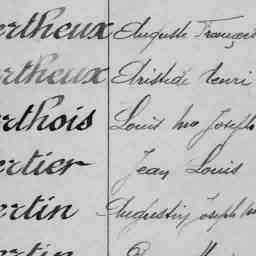 ertheux Auguste François
ertheux Aristide Henri
erthois Louis Mie Joseph
ertier Jean Louis
ertin Augustin Joseph
ertin